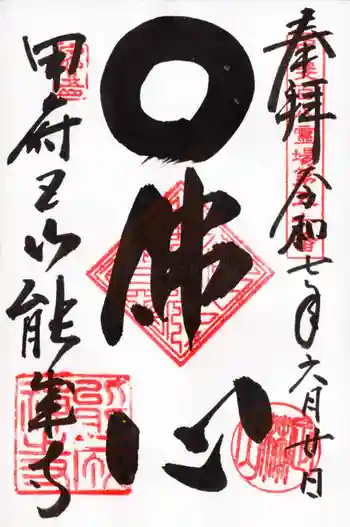 奉拝 令和七年六月廿日
佛心
甲府五山能成寺